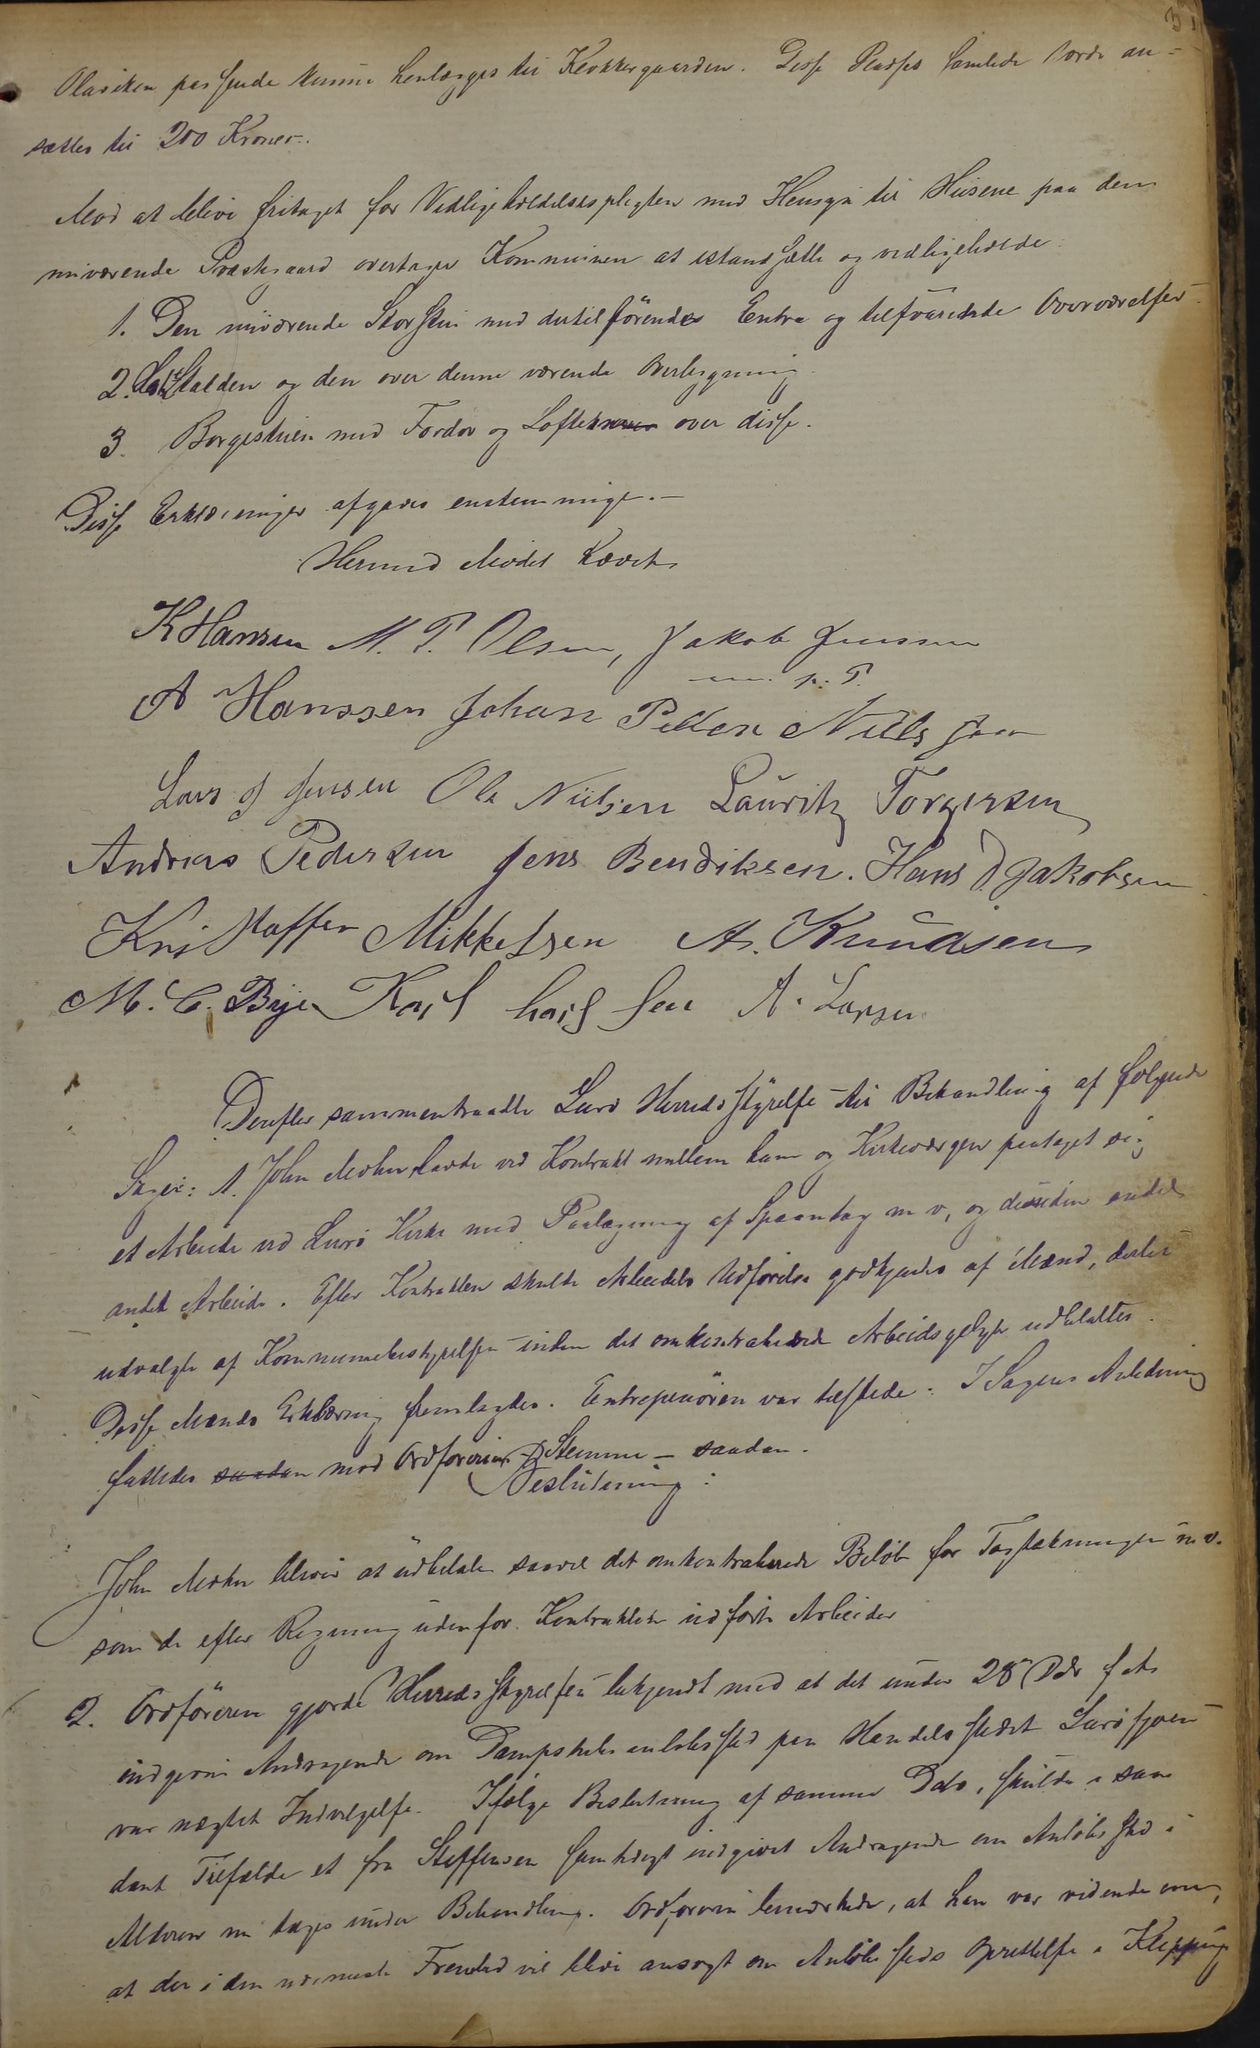 Olasiken passende kunne henlægges til Klokkergaarden. Disse Pladses samlede Værdi an-
sættes til 200 Kroner.
Mod at blive fritaget for Vedligeholdelsespligten med Hensyn til Husene paa den
nuværende Præstegaard overtager Kommunen at istandsætte og vedligeholde:
1. Den nuværende Storstue med dertil førende Entre og tilsvarende Overværelser.
2. Stalden og den over denne værende Overbygning.
3. Borgestuen med Fordør og Lofterne over disse.
Disse Erklæringer afgaves enstemmige.-
Hermed Mødet hævet
K Hansen M. P. Olsen, Jakob Jenssen
m. p. P.
A Hanssen Johan Petter Niels
Lars J Jensen Ole Nielsen Lauritz Torgersen
Andreas Pedersen Jens Bendiksen. Hans D Jakobsen
Kristoffer Mikkelsen A. Knudsen
M. C. Bye Karl A. Larsen
Derefter sammentraadte Lurø Herredsstyrelse til Behandling af følgende
Sager: 1. John Moken havde ved Kontrakt mellem ham og Kirkeværgen paataget sig
et Arbeide ved Lurø Kirke med Paalægning af Spaantag m v, og desuden endel
andet Arbeide. Efter Kontrakten skulde Arbeidets Udførelse godkjendes af Mænd, dertil
udvalgte af Kommunebestyrelsen inden det omkontraherede Arbeidsbeløb udbetaltes.
Disse Mænds Erklæring fremlagdes. Entreprenøren var tilstede. I Sagens Anledning
fattedes saadan mod Ordførerens Stemme - saadan
Beslutning:
John Moken bliver at udbetale saavel det omkontraherede Beløb for Tagtækningen m v.
som de efter Regning udenfor Kontrakten udførte Arbeider
2. Ordføreren gjorde Herredsstyrelsen bekjendt med at det under 28 Dds
indgivne Andragende om Dampskibsanløbssted paa Handelsstedet
var nægtet Indvilgelse. Ifølge Beslutning af samme Dato, skulde i saa
dant Tilfælde et fra Steffensen samtidigt indgivet Andragende om Anløbssted i
Alderen nu tages under Behandling. Ordføreren bemærkede, at han var vidende om,
at der i den nærmeste Fremtid vil blive ansøgt om Anløbssteds Oprettelse i